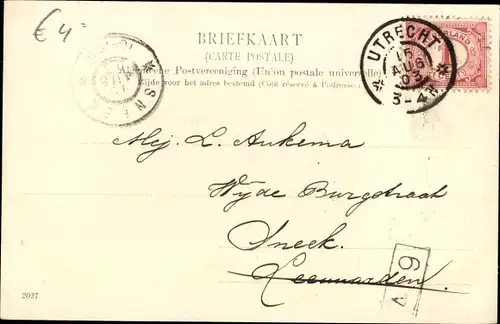 € 4=
BRIEFKAART
(CARTE POSTALE)
Algemeene Postvereeniging (Union postale universelle)
Zijde voor het adres bestemd (Côté réservé à l'adresse)
SNEEK
UTRECHT
15
AUG
03
3-4
Mej. L. Ankema
Wijde Burgstraat
Sneek.
Leeuwarden.
2027